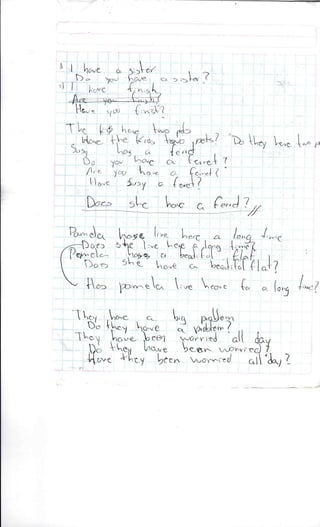 I have a sister
Do you have a sister?
I have finish
Are you finish?
Have you finish?
The kids have two pets
Have the kids two pets? Do they have two p
Susy has a ferret
Do you have a ferret?
Are you have a ferret?
Have Susy a ferret?
Does she have a ferret?
Pamela have live here a long time
Does she live here a long time?
Pamela has a beautiful flat
Does she have a beautiful flat?
Has pamela live here for a long time?
They have a big problem
Do they have a problem?
They have been worried all day
Do they have been worried?
Have they been worried all day?